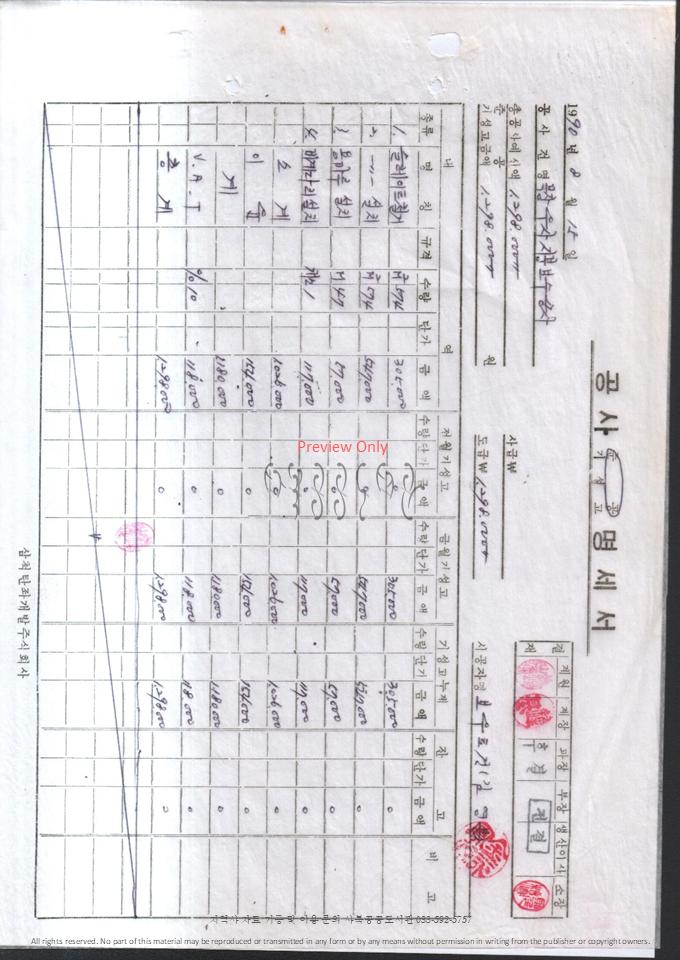 공사 준공 기성고 명세서
1990년 8월 15일
공사건명
총공사예시액 1,298,000
준공 기성고금액 1,298,000 원
사급₩
도급₩ 1,298,000
시공자명
결재 계원 계장 과장 부장 생산이사 소장
후결 전결
내역 전월기성고 금월기성고 기성고누계 잔고 비고
종류 명칭 규격 수량 단가 금액 수량 단가 금액 수량 단가 금액 수량 단가 금액 수량 단가 금액
1. 슬레이트철거 305,000 305,000 305,000 0
2. -〃- 설치 547,000 547,000 547,000 0
3. 설치 57,000 57,000 57,000 0
4. 설치 117,000 117,000 117,000 0
소계 1,026,000 1,026,000 1,026,000 0
이윤 154,000 0 154,000 154,000 0
계 1,180,000 0 1,180,000 1,180,000 0
V.A.T %10 118,000 0 118,000 118,000 0
총계 1,298,000 0 1,298,000 1,298,000 0
삼척탄좌개발주식회사
Preview Only
지역사 자료 기증 및 이용 문의 사북공공도서관 033-592-5757
All rights reserved. No part of this material may be reproduced or transmitted in any form or by any means without permission in writing from the publisher or copyright owners.